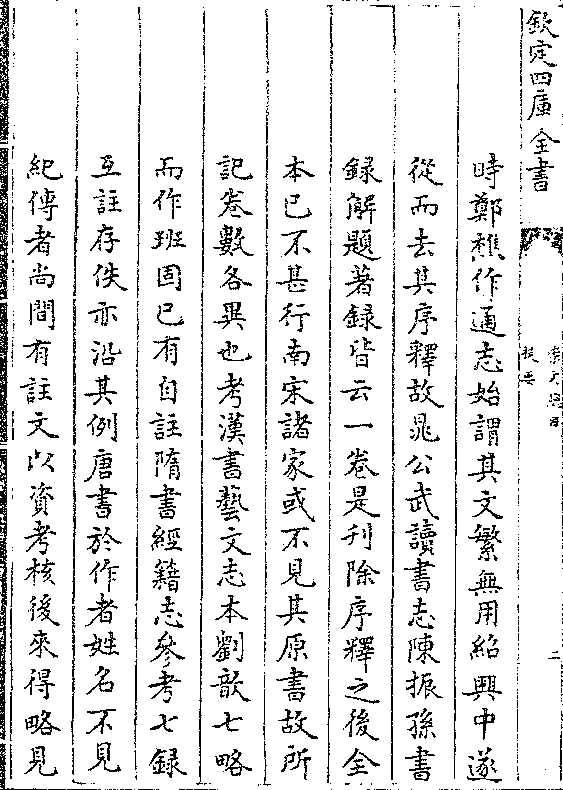 欽定四庫全書
崇文總目
提要
二
時鄭樵作通志始謂其文繁無用紹興中遂
從而去其序釋故晁公武讀書志陳振孫書
録解題著録皆云一卷是刋除序釋之後全
本已不甚行南宋諸家或不見其原書故所
記卷數各異也考漢書藝文志本劉歆七略
而作班固已有自註隋書經籍志參考七録
互註存佚亦沿其例唐書於作者姓名不見
紀傳者尚間有註文以資考核後來得略見